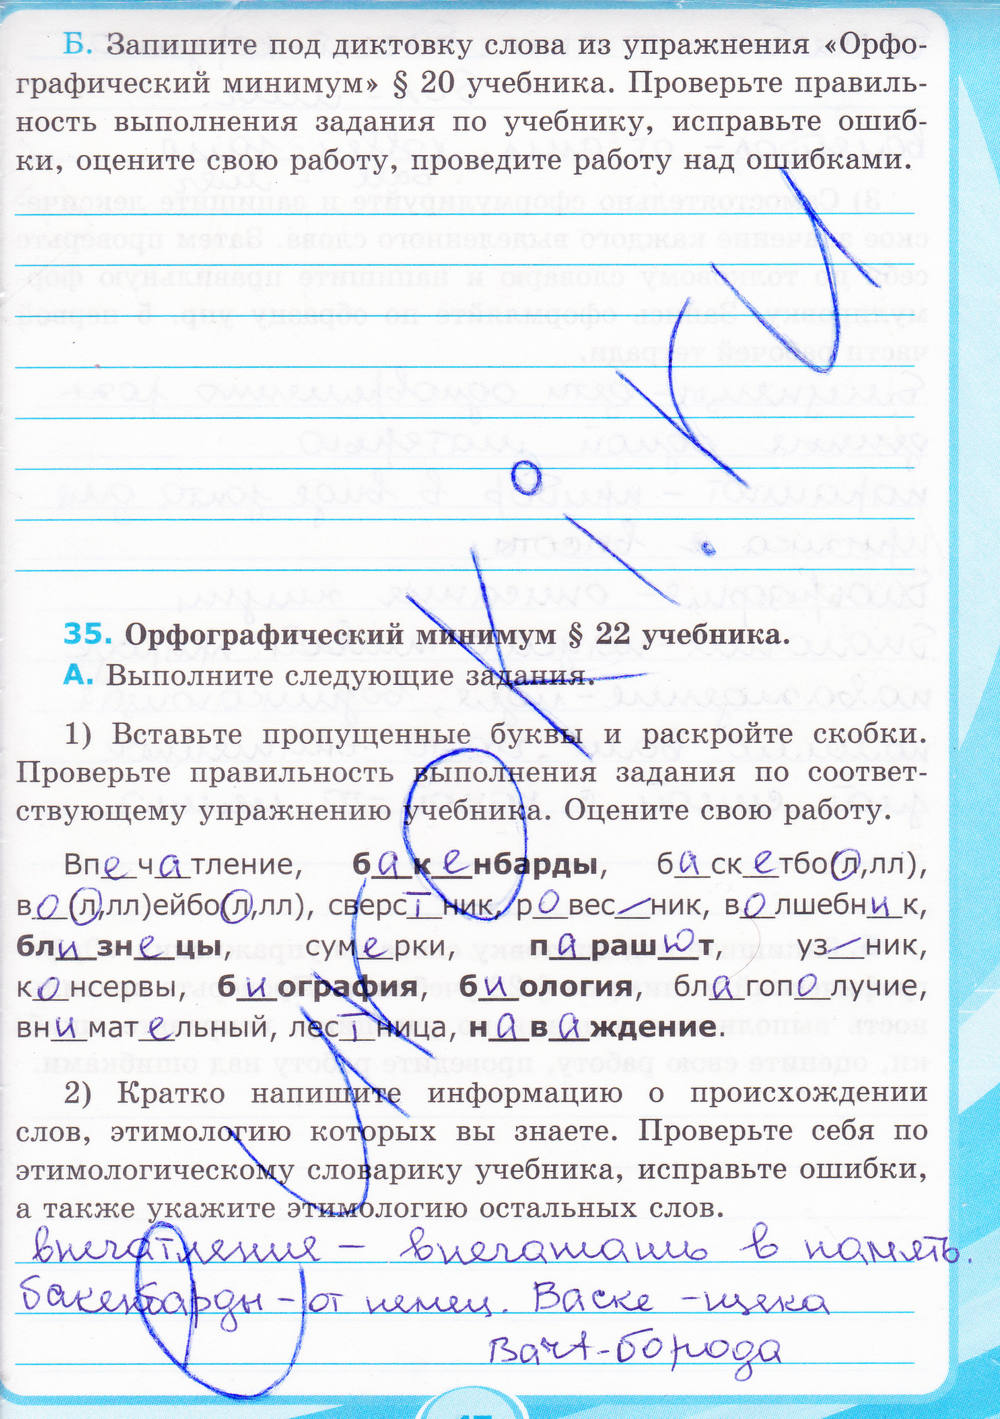 Б. Запишите под диктовку слова из упражнения «Орфо-
графический минимум» § 20 учебника. Проверьте правиль-
ность выполнения задания по учебнику, исправьте ошиб-
ки, оцените свою работу, проведите работу над ошибками.
35. Орфографический минимум § 22 учебника.
А. Выполните следующие задания.
1) Вставьте пропущенные буквы и раскройте скобки.
Проверьте правильность выполнения задания по соответ-
ствующему упражнению учебника. Оцените свою работу.
Впечатление, бакенбарды, баскетбо(л,лл),
во(л,лл)ейбо(л,лл), сверстник, ровесник, волшебник,
близнецы, сумерки, парашют, узник,
консервы, биография, биология, благополучие,
внимательный, лестница, наваждение.
2) Кратко напишите информацию о происхождении
слов, этимологию которых вы знаете. Проверьте себя по
этимологическому словарику учебника, исправьте ошибки,
а также укажите этимологию остальных слов.
впечатление – впечатать в память.
бакенбарды – от немец. Васке – щека
Bart - борода